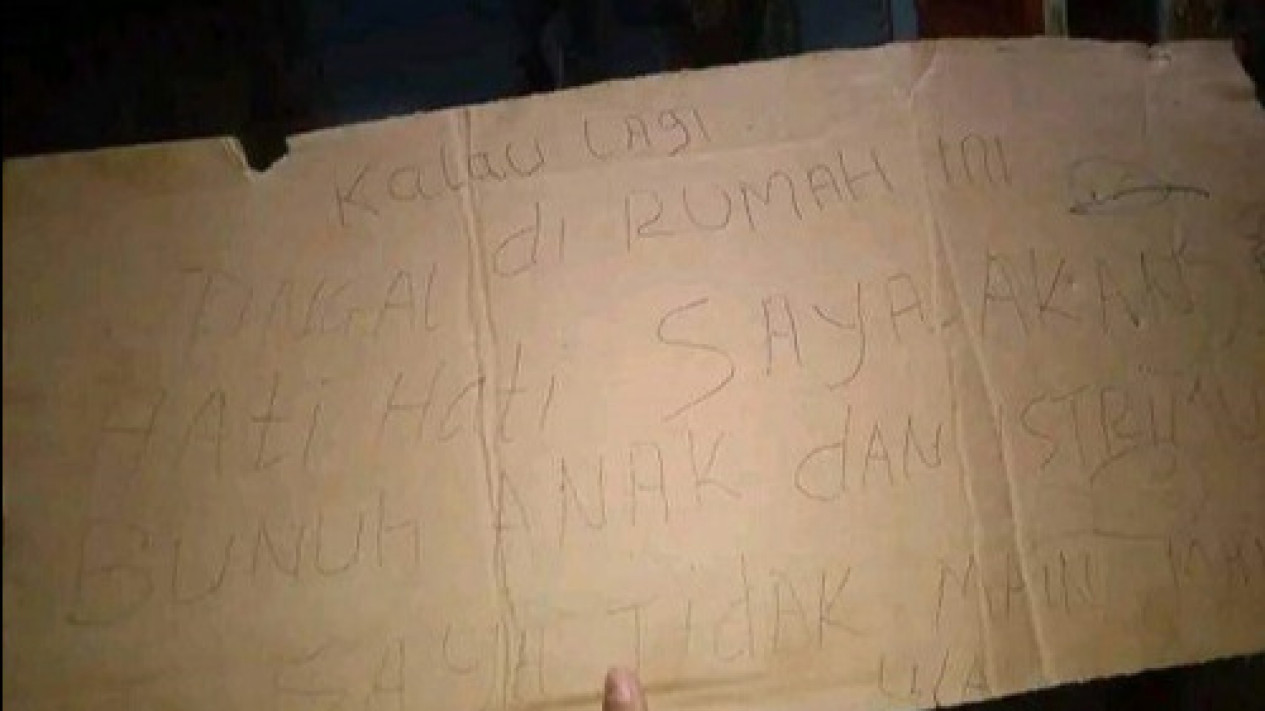 Kalau LAgi
di RUMAH INI
TINGAL
HAti Hati SAYA AKAN
BUNUh ANAK dAN
SAYA TidAK MAIN